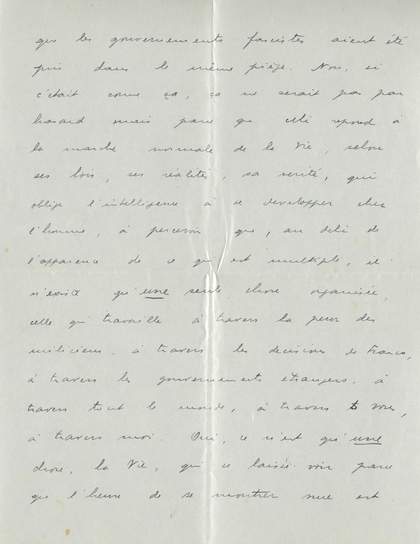 que les gouvernements fascistes aient été
pris dans le même piège. Non, si
c'était comme ça, ça ne serait pas par
hasard mais parce que cela répond à
la marche normale de la Vie, selon
ses lois, ses réalités, sa verité, qui
oblige l'intelligence à se developper chez
l'homme, à percevoir que, au delà de
l'apparence de ce qui est multiple, il
n'existe qu'une seule chose organisée,
celle qui travaille à travers la peur des
miliciens, à travers les decisions de Franco,
à travers les gouvernements étrangers, à
travers tout le monde, à travers vous,
à travers moi. Oui, ce n'est qu'une
chose, la Vie, qui se laisse voir parce
que l'heure de se montrer nue est